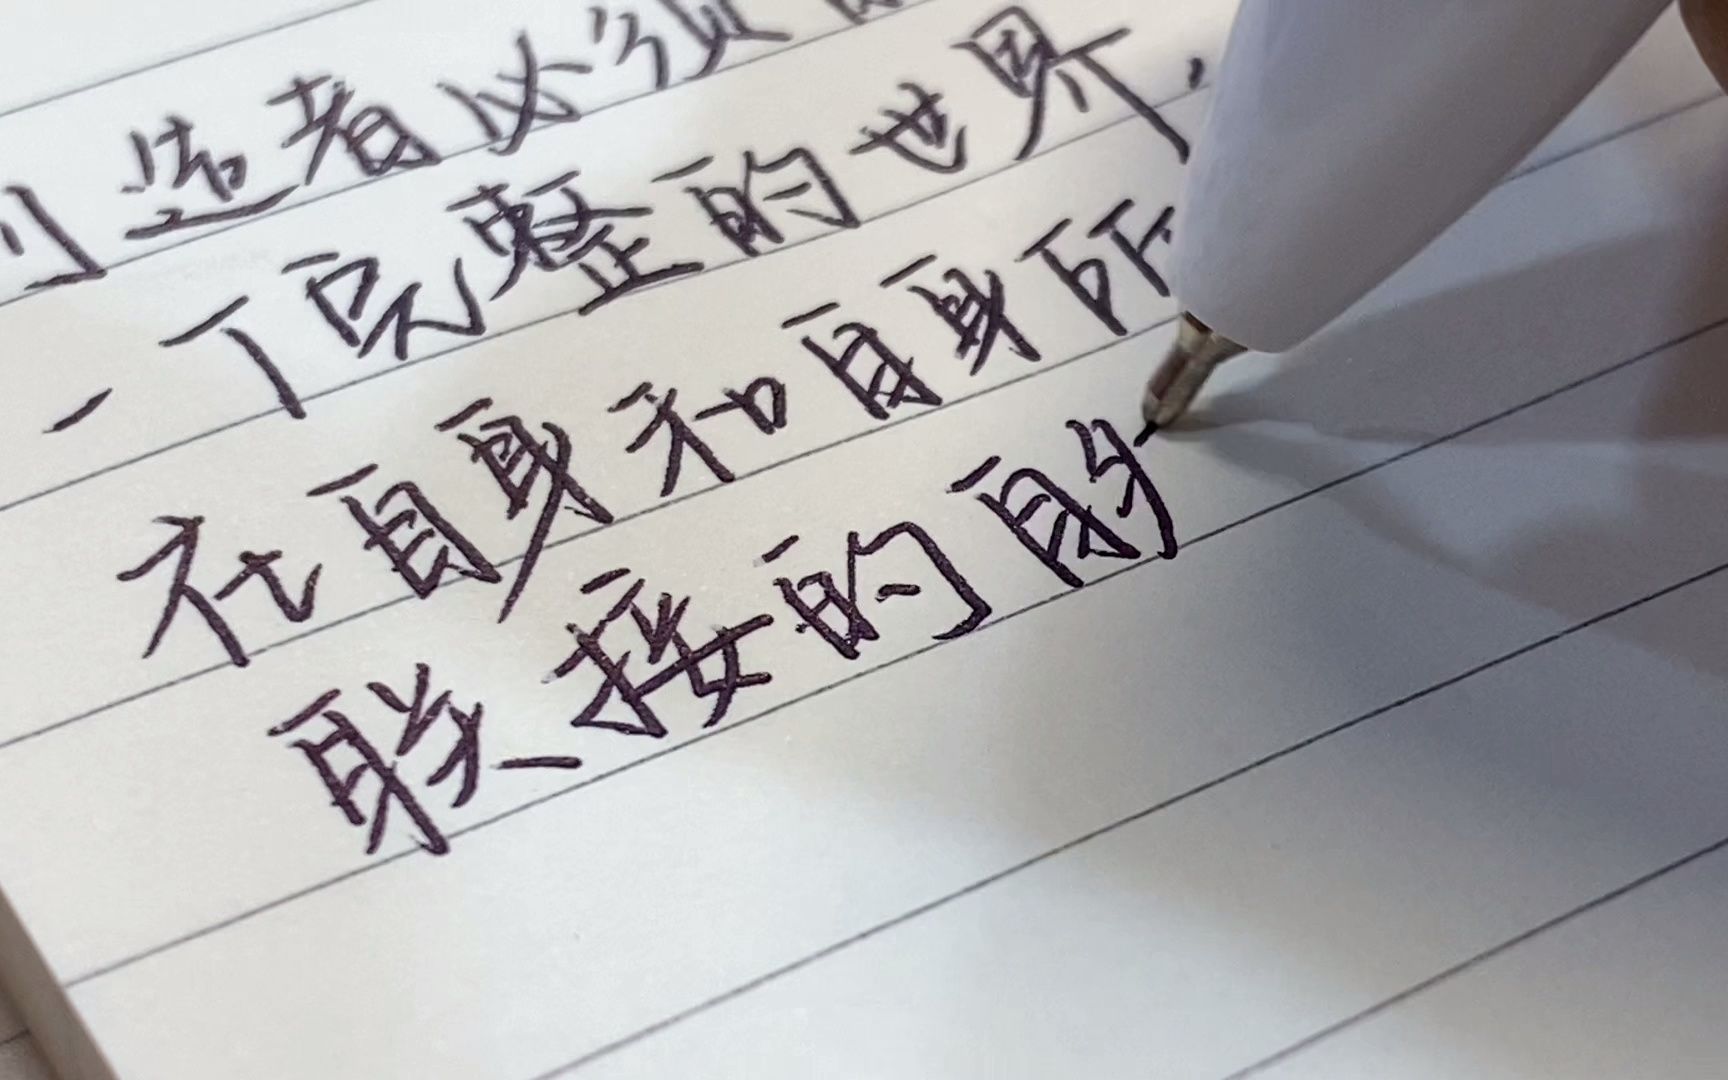 造者必须
一个完整的世界,
在自身和自身所
联接的自